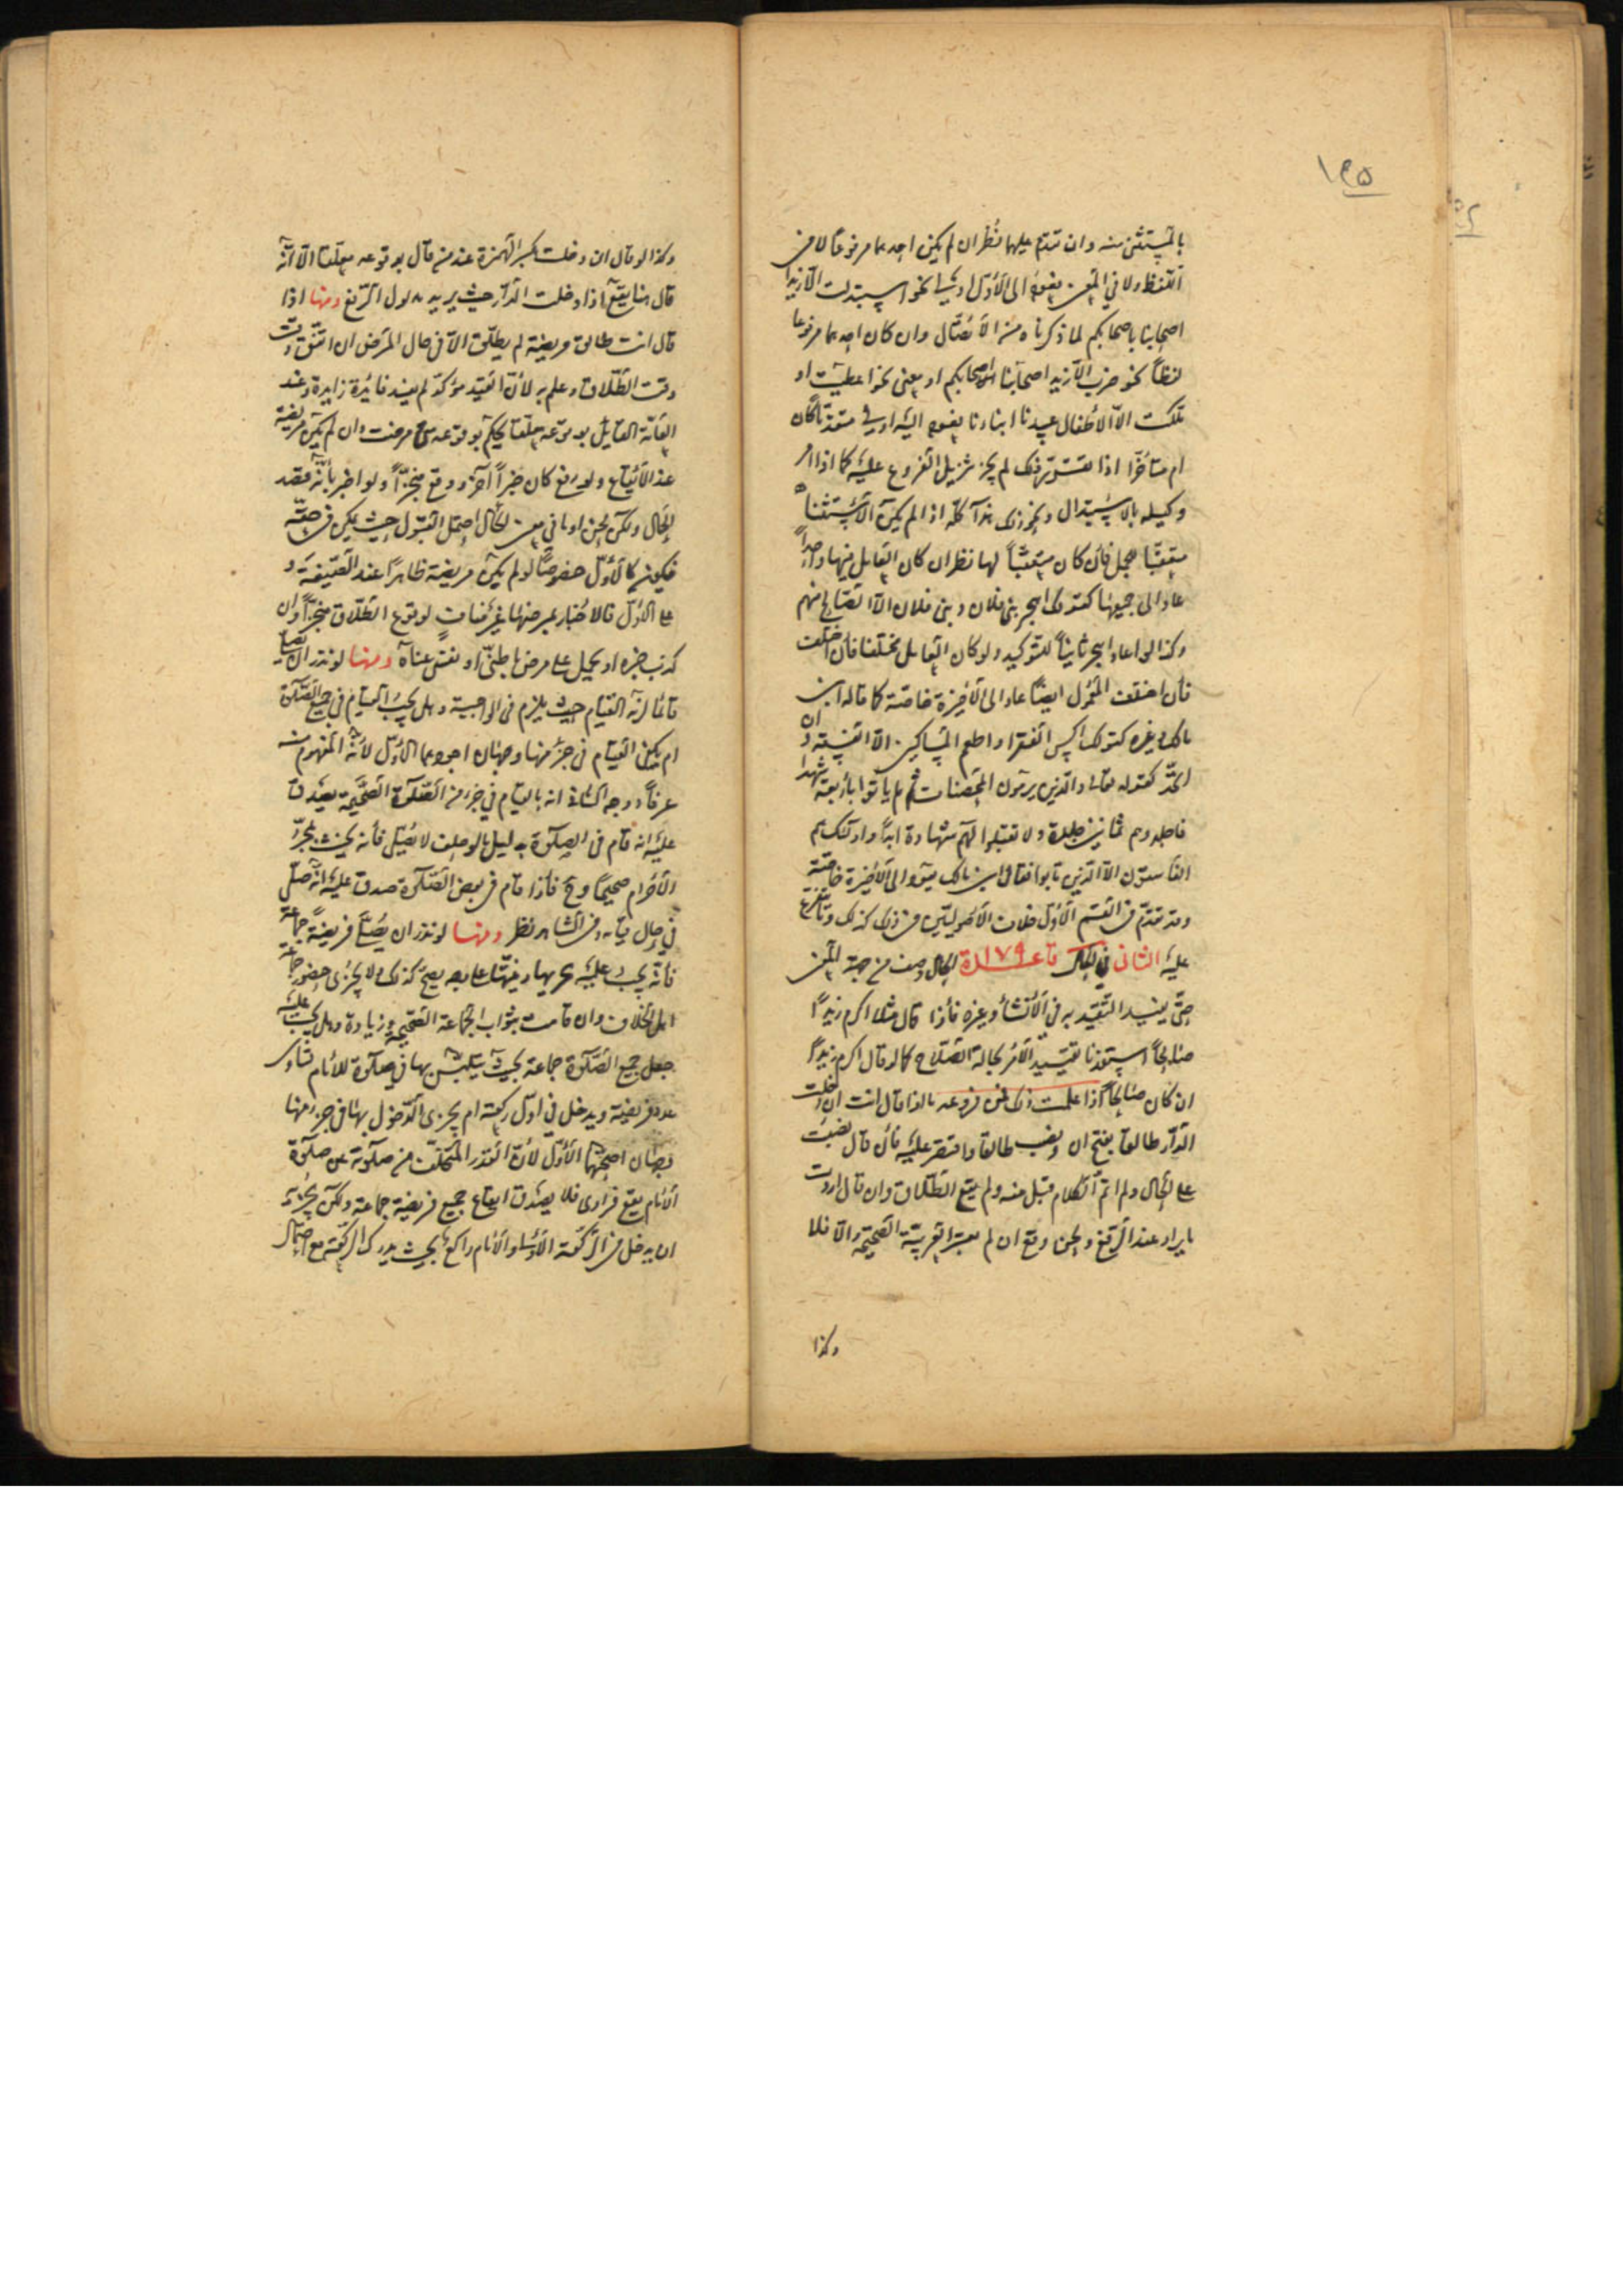 ١٩٥
بالمستثنى منه وان تقدم عليهما نظر ان لم يكن احدهما مرفوعا لا في
اللفظ ولا في المعنى فعوده الى الاول اولى نحو استبدلت الا زيدا
اصحابنا باصحابكم لما ذكرناه من الاتصال وان كان احدهما مرفوعا
لفظا نحو ضرب الا زيدا اصحابنا اصحابكم او معنى نحو اعطيت او
ملكت الا الاطفال عبيدنا ابناءنا فعوده اليه اولى متقدما كان
ام متاخرا اذا تقرر ذلك لم يخف تنزيل الفروع عليه كما اذا امر
وكيله بالاستبدال ونحو ذلك هذا كله اذا لم يكن الاستثناء
متعقبا لجمل فان كان متعقبا لها نظر ان كان العامل فيها واحدا
عاد الى جميعها كقولك اهجر بنى فلان وبنى فلان الا الصالح منهم
وكذا لو اعاد اهجر ثانيا للتوكيد ولو كان العامل مختلفا فان اختلف
فان اختلف المعمول ايضا عاد الى الاخيرة خاصة كما قاله ابن
مالك وغيره كقولك اكس الفقرا واطعم المساكين الا الفسقة وان
اتحد كقوله تعالى والذين يرمون المحصنات ثم لم يأتوا بأربعة شهداء
فاجلدوهم ثمانين جلدة ولا تقبلوا لهم شهادة ابدا واولئك هم
الفاسقون الا الذين تابوا فقال ابن مالك يعود الى الاخيرة خاصة
وقد تقدم في القسم الاول خلاف الاصوليين في ذلك كذلك وما تفرع
عليه الثانى في الحال قاعدة ١٧٩ الحال وصف من جهة المعنى
حتى يفيد التقييد به في الانشاء وغيره فاذا قال مثلا اكرم زيدا
صالحا استفدنا تقييد الامر بحالة الصلاح كما لو قال اكرم زيدا
ان كان صالحا اذا علمت ذلك فمن فروعه ما اذا قال انت ان دخلت
الدار طالقا بفتح ان ونصب طالقا واقتصر عليه فان قال نصبت
على الحال ولم اتم الكلام قبل منه ولم يقع الطلاق وان قال اردت
ما يراد عند الرفع ولحن وقع ان لم تعتبر العربية الصحيحة والا فلا
وكذا
وكذا لو قال ان دخلت بكسر الهمزة عند من قال بوقوعه معلقا الا انه
قال هنا يقع اذا دخلت الدار حيث يريد مدلول الرفع ومنها اذا
قال انت طالق مريضة لم يطلق الا في حال المرض ان اتفق وقت
وقت الطلاق وعلم به لان القيد مؤكد لم يفد فائدة زايدة وعند
العامة القايل بوقوعه معلقا يحكم بوقوعه متى مرضت وان لم تكن مريضة
عند الايقاع ولو رفع كان خبرا آخر ووقع منجزا ولو اخبر بأنه قصد
الحال ولكن لحن او ما في معنى الحال احتمل القبول حيث يمكن في حقه
فيكون كالاول خصوصا لو لم يكن مريضة ظاهرا عند الصيغة و
على الاول فالاخبار بمرضها غير مناف لوقوع الطلاق منجزا وان
كذب خبره او يحمل على مرض باطنى او نقص عناه ومنها لو نذر ان يصلى
قائما لزمه القيام حيث يلزم في الواجبة وهل يجب القيام في جميع الصلاة
ام يكفى القيام في جزء منها وجهان اجودهما الاول لانه المفهوم منه
عرفا ووجه الثانى انه بالقيام في جزء من الصلوة الصحيحة يصدق
عليه انه قام في الصلوة بدليل ما لو حلف لا يصلى فانه يحنث بمجرد
الاحرام صحيحا وح فاذا قام في بعض الصلوة صدق عليه انه صلى
في حال قيامه وفى الشاهد نظر ومنها لو نذر ان يصلى فريضة جماعة
فانه يجب عليه تحريها وفيها على وجه يصح كذلك ولا يجزى حضور جماعة
اهل الخلاف وان قامت بثواب الجماعة الصحيحة وزيادة وهل يجب عليه
جعل جميع الصلوة جماعة بحيث يتلبس بها في صلوة للامام تساوى
عدد فريضة ويدخل في اول ركعة ام يجزى الدخول بها في جزء منها
وجهان اصحهما الاول لان القدر المتخلف من صلوته عن صلوة
الامام يقع فرادى فلا يصدق ايقاع جميع فريضة جماعة ولكن يجزئه
ان يدخل في الركعة الاولى والامام راكع بحيث يدرك الركعة مع احتمال